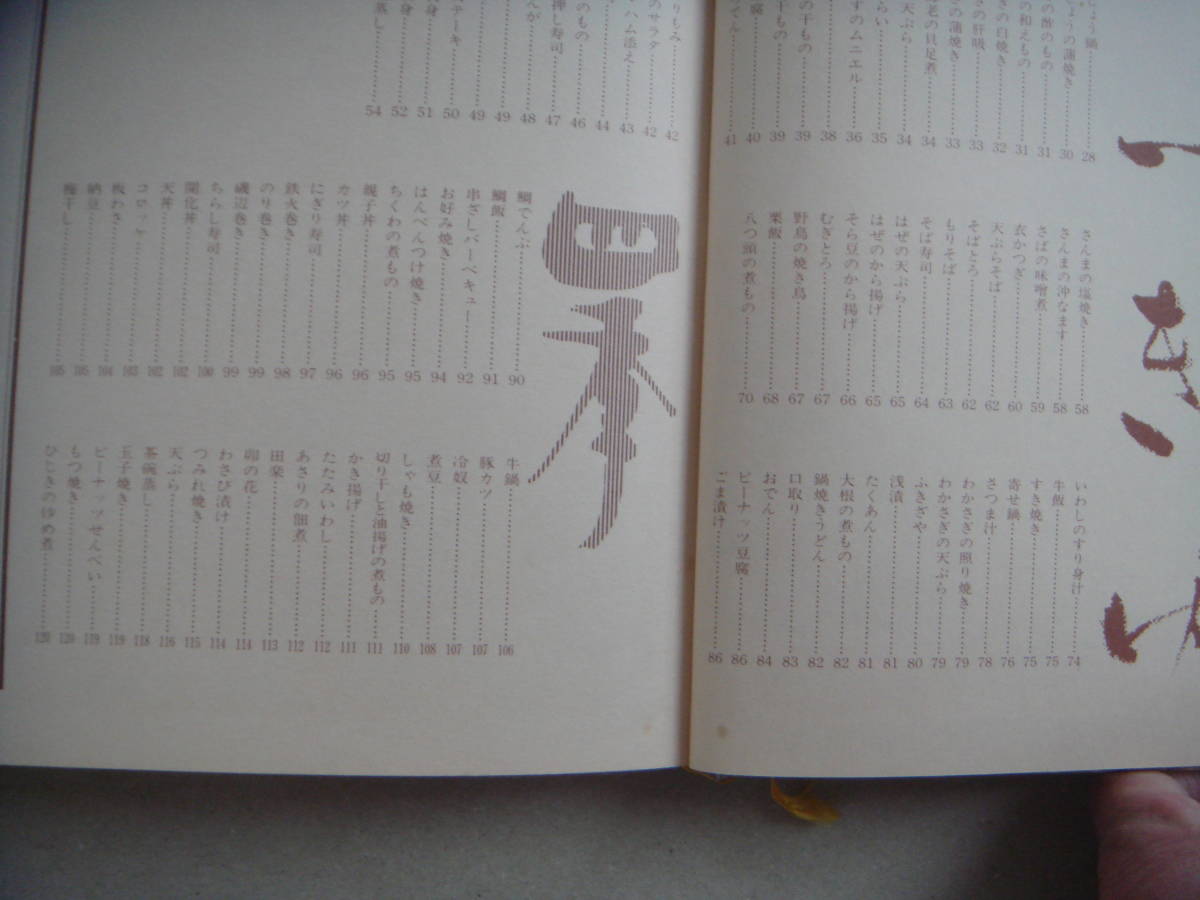 つきじ
じょう鍋……28
ょうの蒲焼き……30
の酢のもの……31
の和えもの……31
きの白焼き……32
の肝吸……33
きの蒲焼き……33
老の具足煮……34
天ぷら……34
らい……35
すのムニエル……36
……38
干もの……39
の干もの……39
腐……40
でん……41
さんまの塩焼き……58
さんまの沖なます……58
さばの味噌煮……59
衣かつぎ……60
天ぷらそば……62
そばとろ……62
もりそば……63
そば寿司……64
はぜの天ぷら……65
はぜのから揚げ……65
そら豆のから揚げ……66
むぎとろ……67
野鳥の焼き鳥……67
栗飯……68
八つ頭の煮もの……70
いわしのすり身汁……74
牛飯……75
すき焼き……75
寄せ鍋……76
さつま汁……78
わかさぎの照り焼き……79
わかさぎの天ぷら……79
ふきざや……80
浅漬……81
たくあん……81
大根の煮もの……82
鍋焼きうどん……82
口取り……83
おでん……84
ピーナッツ豆腐……86
ごま漬け……86
りもみ……42
のサラダ……42
ハム添え……43
……44
のもの……46
押し寿司……47
んが……48
……49
……49
テーキ……50
身……51
身……52
蒸し……54
四季
鯛でんぶ……90
鯛飯……91
串ざしバーベキュー……92
お好み焼き……94
はんぺんつけ焼き……95
ちくわの煮もの……95
親子丼……96
カツ丼……96
にぎり寿司……97
鉄火巻き……98
のり巻き……99
磯辺巻き……99
ちらし寿司……100
開化丼……102
天丼……102
コロッケ……103
板わさ……104
納豆……105
梅干し……105
牛鍋……106
豚カツ……107
冷奴……107
煮豆……108
しゃも焼き……110
切り干しと油揚げの煮もの……111
かき揚げ……111
たたみいわし……112
あさりの佃煮……112
田楽……113
卯の花……114
わさび漬け……114
つみれ焼き……115
天ぷら……116
茶碗蒸し……118
玉子焼き……119
ピーナッツせんべい……119
もつ焼き……120
ひじきの炒め煮……120